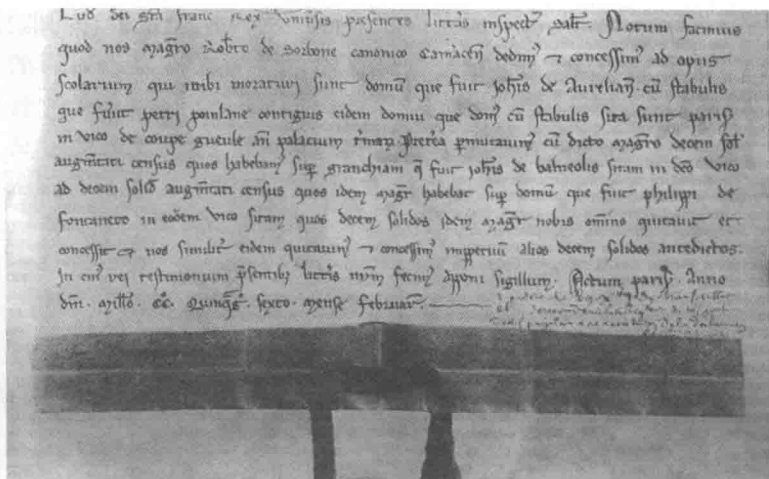 Lud dei grã franc Rex Univsis presentes litteras inspectr salt. Notum facimus
quod nos magro Robto de Sorbone canonico Camacen dedim⁹ ⁊ concessim⁹ ad opus
scolarium qui inibi moraturi sunt domũ que fuit Johis de Aurelian. cũ stabulis
que fuerũt petri poinlane contiguis eidem domui que dom⁹ cũ stabulis sita sunt paris
in vico de coupe gueule añ palacium Pretea pmutauim⁹ cũ dicto magro decem sol
augmtati census quos habebam⁹ sup granchiam q̃ fuit Johis de balneolis sitam in dco vico
ad decem solid augmtati census quos idem magr habebat sup domũ que fuit philippi de
fontaneto in eodem vico sitam quos decem solidos idem magr nobis omino quitauit et
concessit ⁊ nos similit eidem quitauim⁹ ⁊ concessim⁹ imppetuũ alios decem solidos antedictos.
In cui⁹ rei testimonium psentib⁹ littis nrm fecim⁹ apponi sigillum. Actum paris. Anno
dni. millo. CC. Quinqgo. sexto. mense februar.